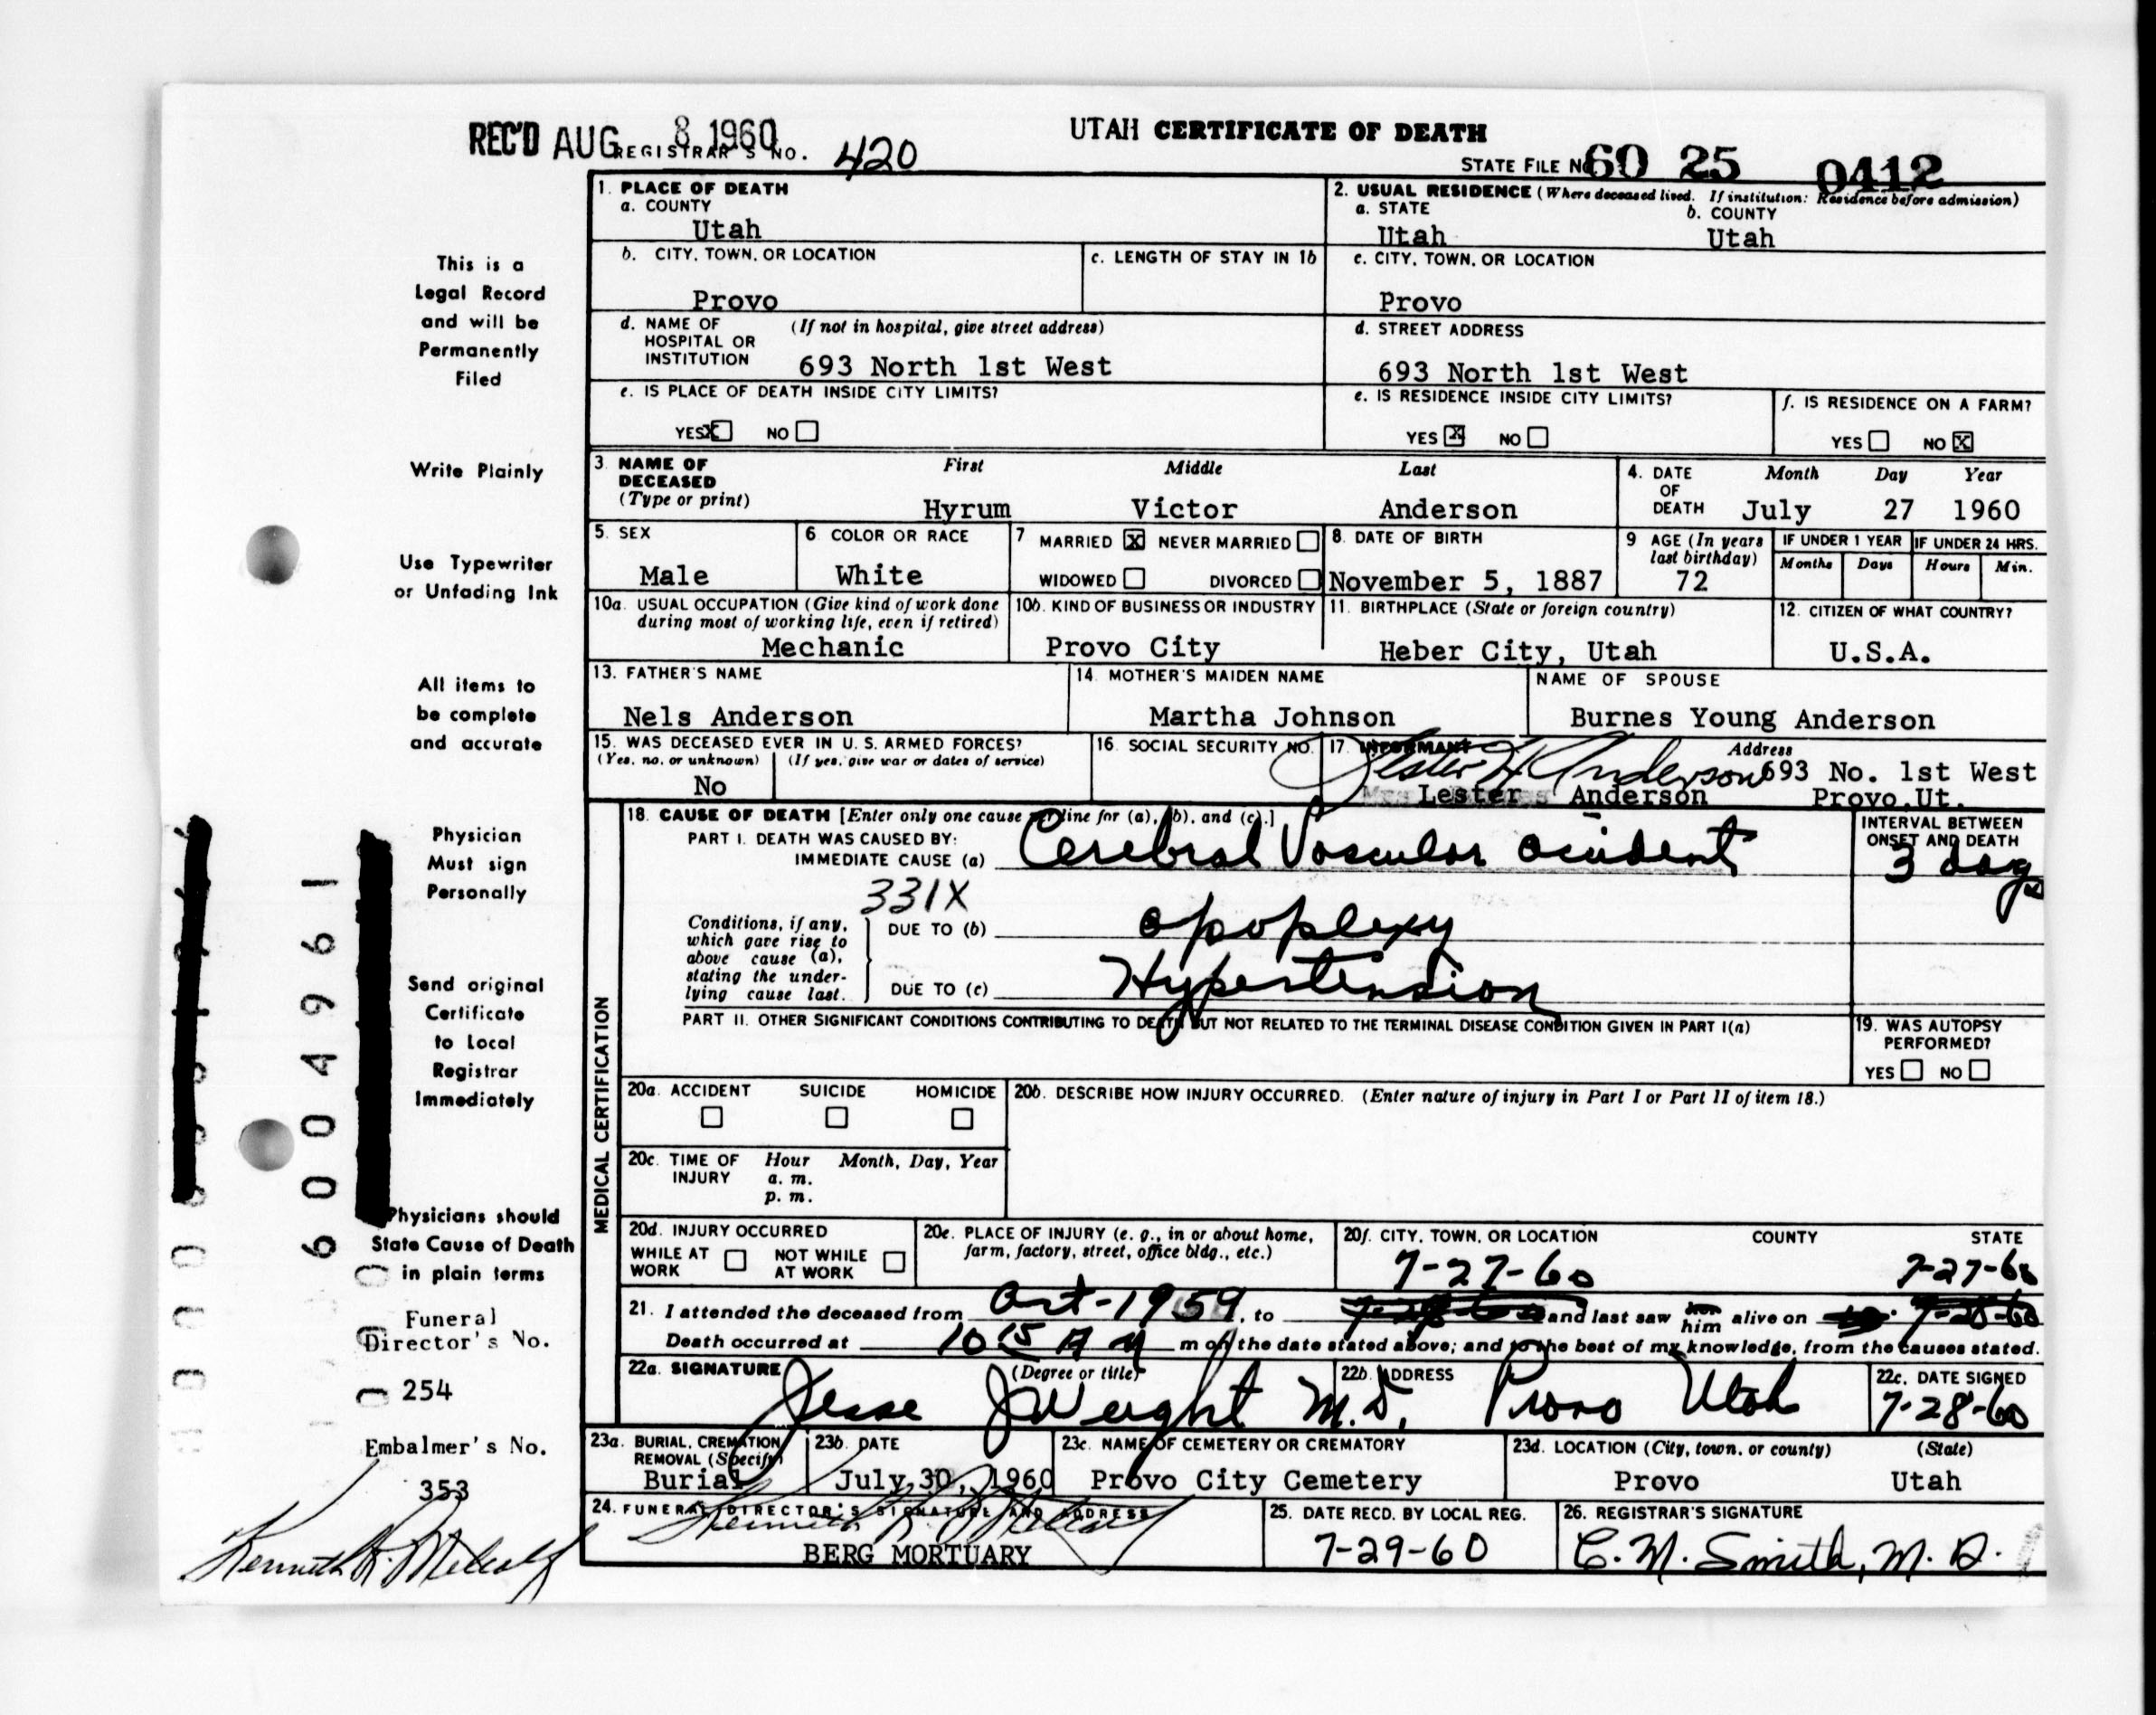 REC'D AUG 8 1960
REGISTRAR'S NO. 420
UTAH CERTIFICATE OF DEATH
STATE FILE NO. 60 25 0412
1. PLACE OF DEATH
a. COUNTY
Utah
2. USUAL RESIDENCE (Where deceased lived. If institution: Residence before admission)
a. STATE b. COUNTY
Utah Utah
b. CITY, TOWN, OR LOCATION
Provo
c. LENGTH OF STAY IN 1b
c. CITY, TOWN, OR LOCATION
Provo
d. NAME OF HOSPITAL OR INSTITUTION (If not in hospital, give street address)
693 North 1st West
d. STREET ADDRESS
693 North 1st West
e. IS PLACE OF DEATH INSIDE CITY LIMITS?
YES X NO
e. IS RESIDENCE INSIDE CITY LIMITS?
YES X NO
f. IS RESIDENCE ON A FARM?
YES NO X
3. NAME OF DECEASED (Type or print)
First Middle Last
Hyrum Victor Anderson
4. DATE OF DEATH
Month Day Year
July 27 1960
5. SEX
Male
6 COLOR OR RACE
White
7 MARRIED X NEVER MARRIED
WIDOWED DIVORCED
8. DATE OF BIRTH
November 5, 1887
9 AGE (In years last birthday)
72
IF UNDER 1 YEAR IF UNDER 24 HRS.
Months Days Hours Min.
10a. USUAL OCCUPATION (Give kind of work done during most of working life, even if retired)
Mechanic
10b. KIND OF BUSINESS OR INDUSTRY
Provo City
11. BIRTHPLACE (State or foreign country)
Heber City, Utah
12. CITIZEN OF WHAT COUNTRY?
U.S.A.
13. FATHER'S NAME
Nels Anderson
14. MOTHER'S MAIDEN NAME
Martha Johnson
NAME OF SPOUSE
Burnes Young Anderson
15. WAS DECEASED EVER IN U. S. ARMED FORCES?
(Yes, no, or unknown) (If yes, give war or dates of service)
No
16. SOCIAL SECURITY NO.
17. INFORMANT Address
Lester H Anderson 693 No. 1st West
Lester Anderson Provo, Ut.
18. CAUSE OF DEATH [Enter only one cause per line for (a), (b), and (c).]
PART I. DEATH WAS CAUSED BY:
IMMEDIATE CAUSE (a) Cerebral Vascular accident
INTERVAL BETWEEN ONSET AND DEATH
3 days
331X
Conditions, if any, which gave rise to above cause (a), stating the underlying cause last.
DUE TO (b) apoplexy
DUE TO (c) Hypertension
PART II. OTHER SIGNIFICANT CONDITIONS CONTRIBUTING TO DEATH BUT NOT RELATED TO THE TERMINAL DISEASE CONDITION GIVEN IN PART I(a)
19. WAS AUTOPSY PERFORMED?
YES NO
MEDICAL CERTIFICATION
20a. ACCIDENT SUICIDE HOMICIDE
20b. DESCRIBE HOW INJURY OCCURRED. (Enter nature of injury in Part I or Part II of item 18.)
20c. TIME OF INJURY Hour Month, Day, Year
a. m.
p. m.
20d. INJURY OCCURRED
WHILE AT WORK NOT WHILE AT WORK
20e. PLACE OF INJURY (e. g., in or about home, farm, factory, street, office bldg., etc.)
20f. CITY, TOWN, OR LOCATION COUNTY STATE
7-27-60 7-27-60
21. I attended the deceased from Oct-1959, to and last saw her him alive on 7-28-60
Death occurred at 10 15 A M m on the date stated above; and to the best of my knowledge, from the causes stated.
22a. SIGNATURE (Degree or title)
Jesse J Weight M.D.
22b. ADDRESS
Provo Utah
22c. DATE SIGNED
7-28-60
23a. BURIAL, CREMATION REMOVAL (Specify)
Burial
23b. DATE
July 30, 1960
23c. NAME OF CEMETERY OR CREMATORY
Provo City Cemetery
23d. LOCATION (City, town, or county) (State)
Provo Utah
24. FUNERAL DIRECTOR'S SIGNATURE AND ADDRESS
Kenneth R. Metcalf
BERG MORTUARY
25. DATE RECD. BY LOCAL REG.
7-29-60
26. REGISTRAR'S SIGNATURE
C. M. Smith, M. D.
This is a
Legal Record
and will be
Permanently
Filed
Write Plainly
Use Typewriter
or Unfading Ink
All items to
be complete
and accurate
Physician
Must sign
Personally
Send original
Certificate
to Local
Registrar
Immediately
Physicians should
State Cause of Death
in plain terms
Funeral
Director's No.
254
Embalmer's No.
353
Kenneth R. Metcalf
6004961